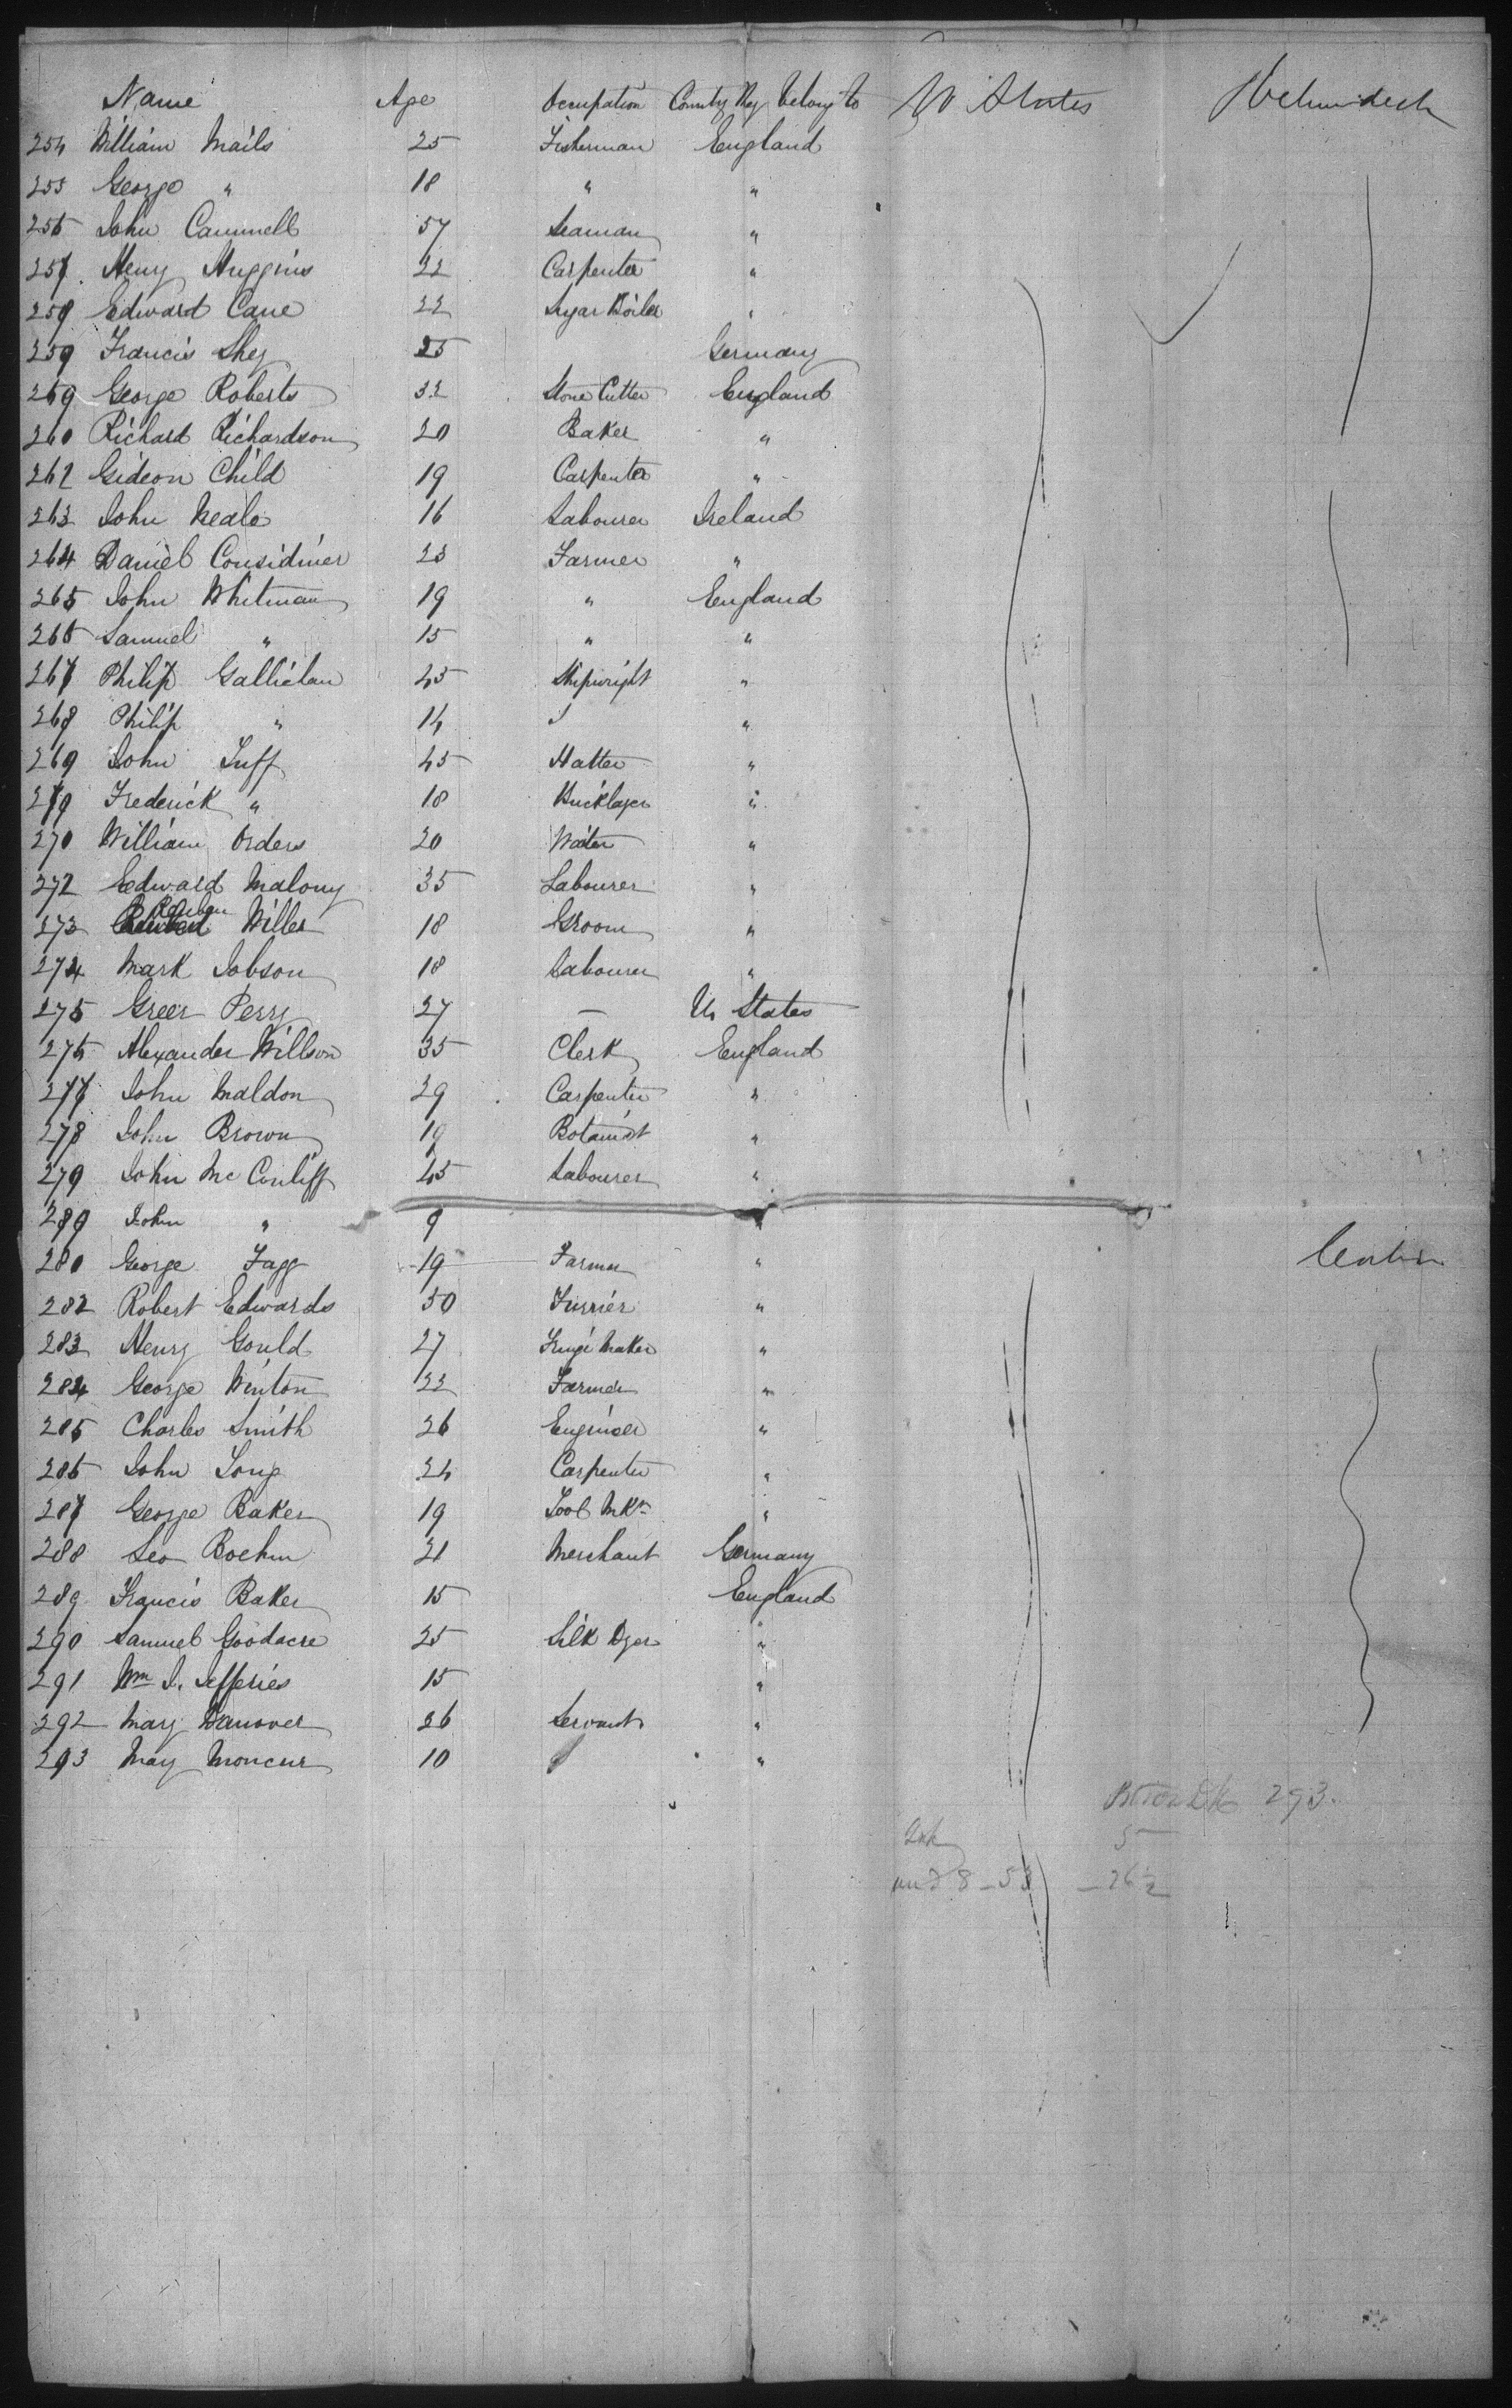 Name Age Occupation Country they belong to U States
254 William Mails 25 Fisherman England
255 George " 18 " "
256 John Cammell 57 Seaman "
257 Henry Huggins 22 Carpenter "
259 Edward Cane 22 Sugar Boiler "
259 Francis Shey 25 Germany
269 George Roberts 32 Stone Cutter England
260 Richard Richardson 20 Baker "
262 Gideon Child 19 Carpenter "
263 John Neale 16 Labourer Ireland
264 Daniel Considiner 23 Farmer "
265 John Whitman 19 " England
266 Samuel " 15 " "
267 Philip Gallichan 45 Shipwright "
268 Philip " 14 "
269 John Tuff 45 Hatter "
279 Frederick " 18 Bricklayer "
270 William Orders 20 Waiter "
272 Edward Malony 35 Labourer "
273 Reuben Willes 18 Groom "
274 Mark Jobson 18 Labourer "
275 Greer Perry 27 — U States
276 Alexander Willson 35 Clerk England
277 John Maldon 29 Carpenter "
278 John Brown 19 Botanist "
279 John Mc Conliff 45 Labourer "
289 John " 9 "
280 George Fagg 19 Farmer "
282 Robert Edwards 50 Furrier "
283 Henry Gould 27 Fringe Maker "
284 George Winton 22 Farmer "
285 Charles Smith 26 Engineer "
286 John Long 24 Carpenter "
287 George Baker 19 Tool Mkr "
288 Leo Boehm 21 Merchant Germany
289 Francis Baker 15 England
290 Samuel Goodacre 25 Silk Dyer "
291 Wm J. Jefferies 15 "
292 Mary Hanover 26 Servant "
293 May Moncur 10 "
293.
5
8 - 53 - 26½